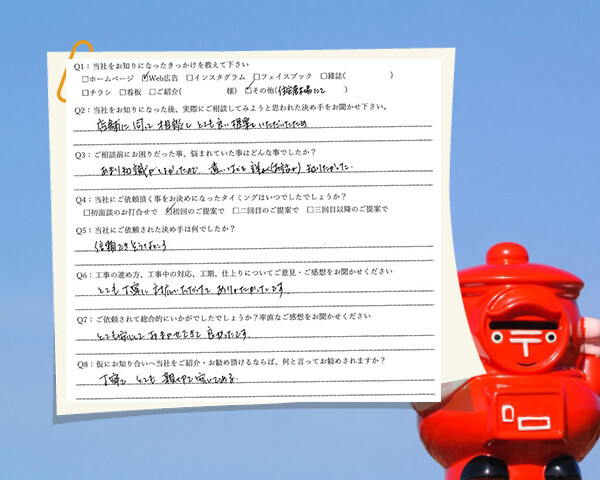 Q1：当社をお知りになったきっかけを教えて下さい
□ホームページ ☑Web広告 □インスタグラム □フェイスブック □雑誌( )
□チラシ □看板 □ご紹介( 様) ☑その他( にて )
Q2：当社をお知りになった後、実際にご相談してみようと思われた決め手をお聞かせ下さい。
店舗に伺って相談し とても良い提案をいただいたため
Q3：ご相談前にお困りだった事、悩まれていた事はどんな事でしたか？
あまり知識がなかったので 違いなどを 知りたかった。
Q4：当社にご依頼頂く事をお決めになったタイミングはいつでしたでしょうか？
□初面談のお打合せで ☑初回のご提案で □二回目のご提案で □三回目以降のご提案で
Q5：当社にご依頼された決め手は何でしたか？
信頼できそうなところ
Q6：工事の進め方、工事中の対応、工期、仕上りについてご意見・ご感想をお聞かせください
とても丁寧に対応いただけて ありがたかったです
Q7：ご依頼されて総合的にいかがでしたでしょうか？率直なご感想をお聞かせください
とても安心して おまかせできて 良かったです。
Q8：仮にお知り合いへ当社をご紹介・お勧め頂けるならば、何と言ってお勧めされますか？
丁寧で とても 親切で安心できる。
〒